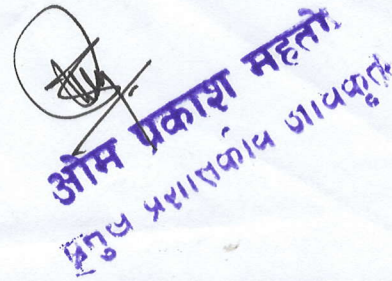 ओम प्रकाश महतो
प्रमुख प्रशासकीय अधिकृत